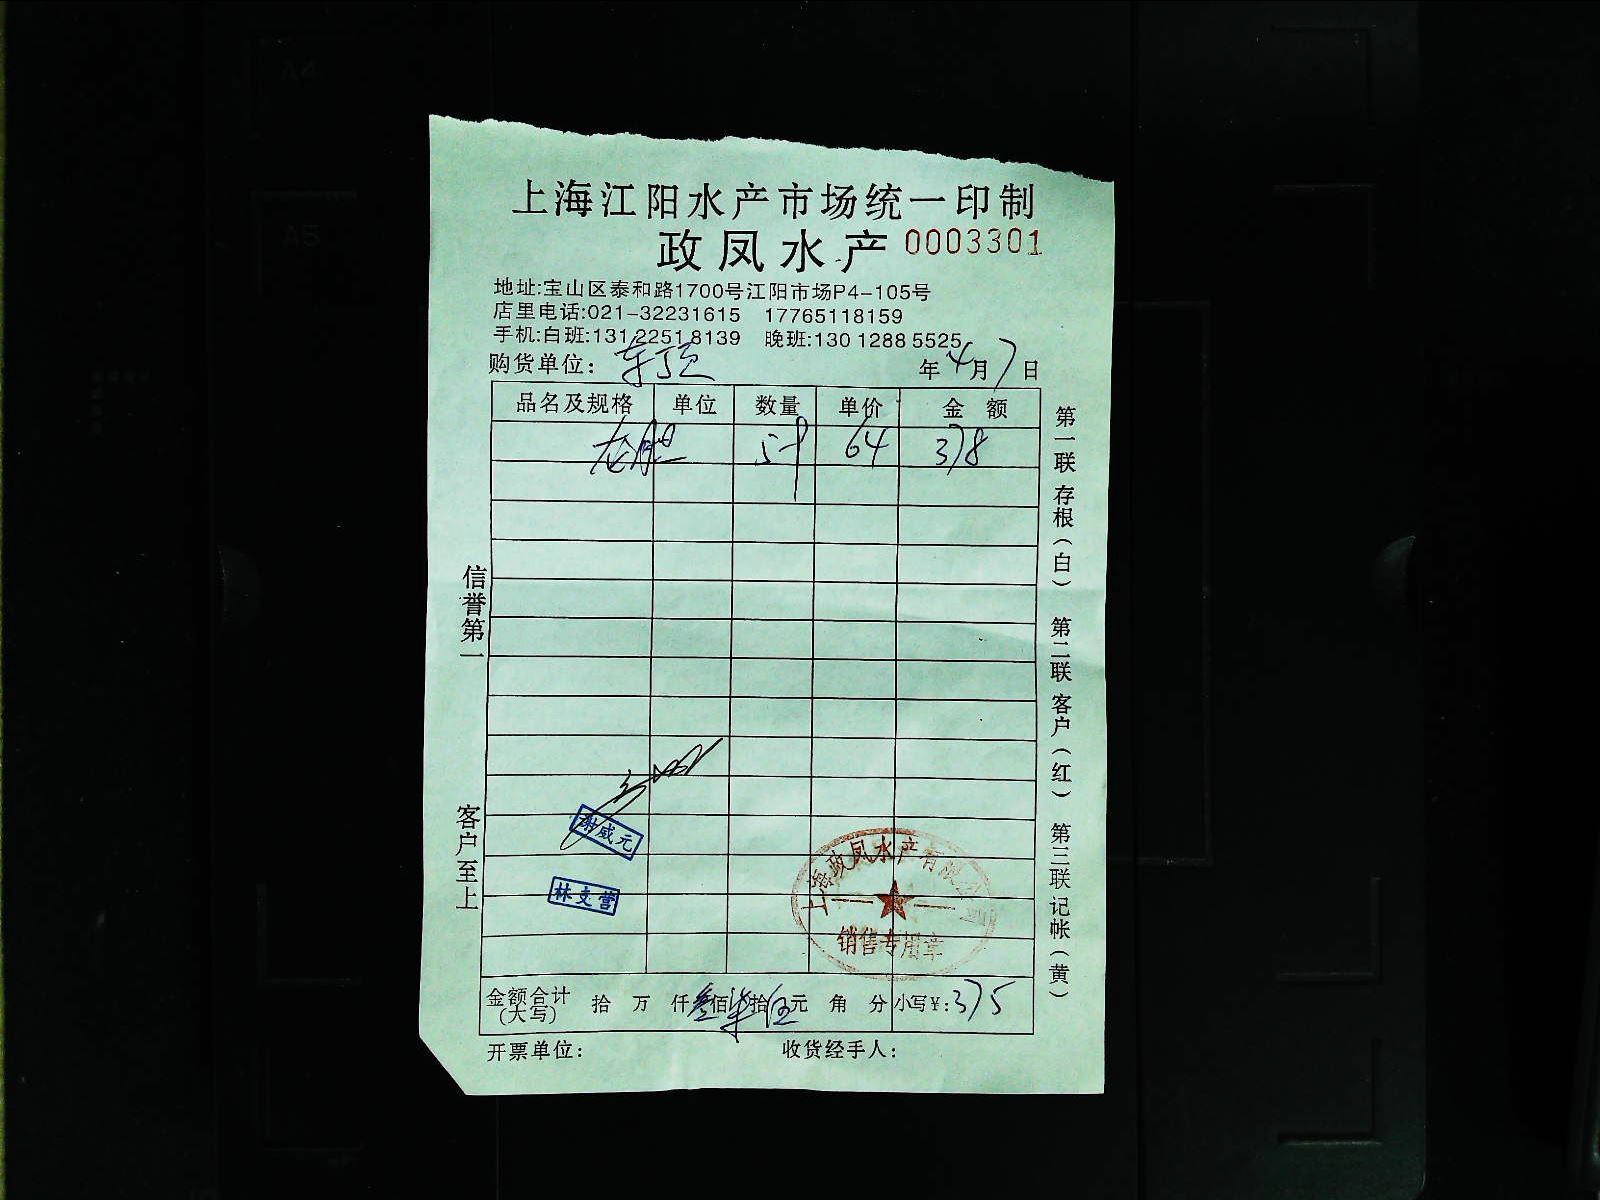 上海江阳水产市场统一印制
政凤水产 0003301
地址:宝山区泰和路1700号江阳市场P4-105号
店里电话:021-32231615 17765118159
手机:白班:131 2251 8139 晚班:130 1288 5525
购货单位: 年4月7日
品名及规格 单位 数量 单价 金额
龙胆 64 378
信誉第一
客户至上
第一联存根(白) 第二联客户(红) 第三联记帐(黄)
谢威元
林支营
上海政凤水产有限公司
销售专用章
金额合计(大写) 拾 万 仟叁佰柒拾伍元 角 分 小写¥:375
开票单位: 收货经手人: